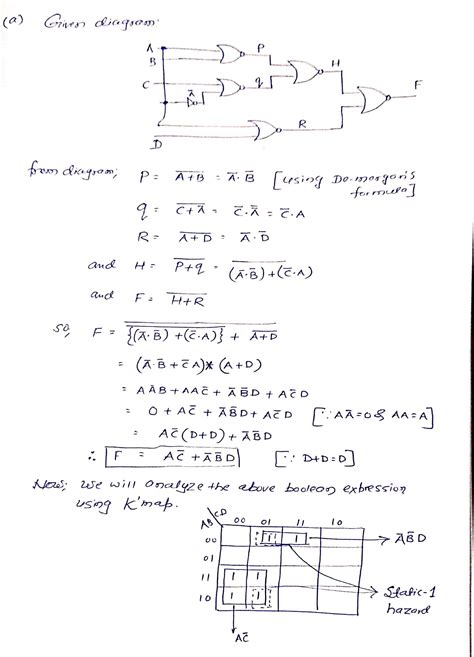 (a) Given diagram:
A
B
P
C
Ā
q
H
F
D
R
from diagram; P = \overline{A+B} = Ā.B̄ [Using De-morgan's formula]
q = \overline{C+Ā} = C̄.\overline{Ā} = C̄.A
R = \overline{A+D} = Ā.D̄
and H = \overline{P+q} = \overline{(Ā.B̄)+(C̄.A)}
and F = \overline{H+R}
So, F = \overline{\overline{{(Ā.B̄)+(C̄.A)}} + \overline{A+D}}
= (Ā.B̄+C̄A)*(A+D)
= AĀB̄+AAC̄+ĀB̄D+AC̄D
= 0+AC̄+ĀB̄D+AC̄D [∵ AĀ=0 & AA=A]
= AC̄(D+D)+ĀB̄D
∴ F = AC̄+ĀB̄D [∵ D+D=D]
Now; we will analyze the above boolean expression
using K'map.
AB CD 00 01 11 10
00 1 1 ĀB̄D
01
11 1 1
10 1 1
Static-1
hazard
AC̄